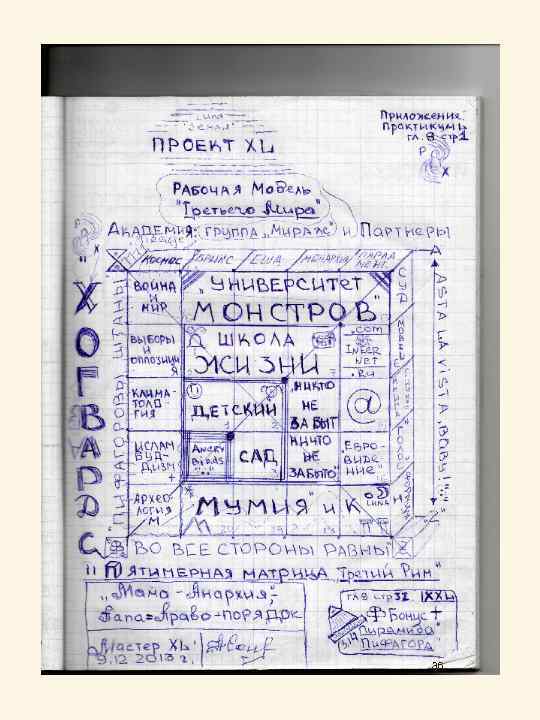 ПРОЕКТ XL
Приложение:
Практикумъ
гл. 8 стр 1
Р
Х
Рабочая Модель
"Третьего Мира"
Академия: группа "Мираж" и Партнеры
"ХОГВАРДС"
"ПИФАГОРОВЫ ШТАНЫ
КОСМОС
БРИКС
США
МОНАРХИЯ
ПАРЛАМЕНТ
ВОЙНА И МИР
"УНИВЕРСИТЕТ
МОНСТРОВ"
СУД
ВЫБОРЫ И ОППОЗИЦИЯ
ШКОЛА
ЖИЗНИ
.COM
INTERNET
.RU
КЛИМАТОЛОГИЯ
ДЕТСКИЙ
НИКТО НЕ ЗАБЫТ
@
ИСЛАМ БУДДИЗМ +
"Angry Birds"
САД
НИЧТО НЕ ЗАБЫТО
"ЕВРОВИДЕНИЕ"
ГОЛОС
АРХЕОЛОГИЯ М
"МУМИЯ" и К
LUNA
ASTA LA VISTA, BABY!
ВО ВСЕ СТОРОНЫ РАВНЫ
"ПЯТИМЕРНАЯ МАТРИЦА "Третий Рим"
"Мама - Анархия";
Папа = Право - порядок
гл 8 стр 32 XXL
Ф Бонус +
"Пирамида
ПИФАГОРА"
3,14
Мастер XL:
9.12.2013 г.
36